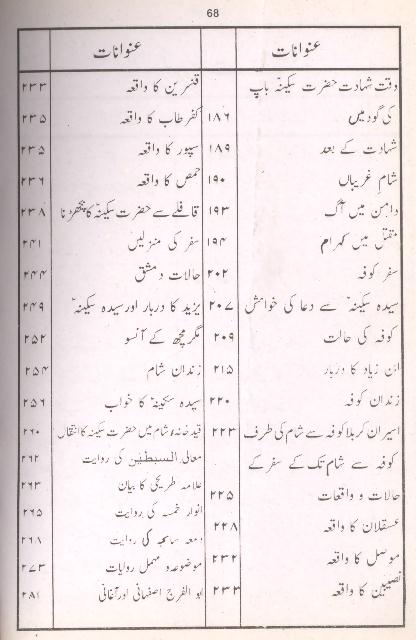 68
عنوانات
وقت شہادت حضرت سکینہؑ باپ
کی گود میں ۱۸۶
شہادت کے بعد ۱۸۹
شام غریباں ۱۹۰
دامن میں آگ ۱۹۳
مقتل میں کہرام ۱۹۴
سفر کوفہ ۲۰۲
سیدہ سکینہؑ سے دعا کی خواہش ۲۰۷
کوفہ کی حالت ۲۰۹
ابن زیاد کا دربار ۲۱۵
زندان کوفہ ۲۲۰
اسیران کربلا کوفہ سے شام کی طرف ۲۲۳
کوفہ سے شام تک کے سفر کے
حالات و واقعات ۲۲۵
عسقلان کا واقعہ ۲۲۸
موصل کا واقعہ ۲۳۲
نصیبین کا واقعہ ۲۳۳
عنوانات
قنسرین کا واقعہ ۲۳۳
کفر طاب کا واقعہ ۲۳۵
سیور کا واقعہ ۲۳۵
حمص کا واقعہ ۲۳۶
قافلے سے حضرت سکینہؑ کا بچھڑنا ۲۳۸
سفر کی منزلیں ۲۴۱
حالات دمشق ۲۴۴
یزید کا دربار اور سیدہ سکینہؑ ۲۴۹
مگرمچھ کے آنسو ۲۵۲
زندان شام ۲۵۴
سیدہ سکینہؑ کا خواب ۲۵۶
قید خانۂ شام میں حضرت سکینہؑ کا انتقال ۲۶۰
معالی السبطین کی روایت ۲۶۲
علامہ طریحی کا بیان ۲۶۳
انوار خمسہ کی روایت ۲۶۵
دمعہ ساکبہ کی روایت ۲۶۸
موضوعہ و مہمل روایات ۲۷۳
ابو الفرج اصفہانی اور آغانی ۲۸۱